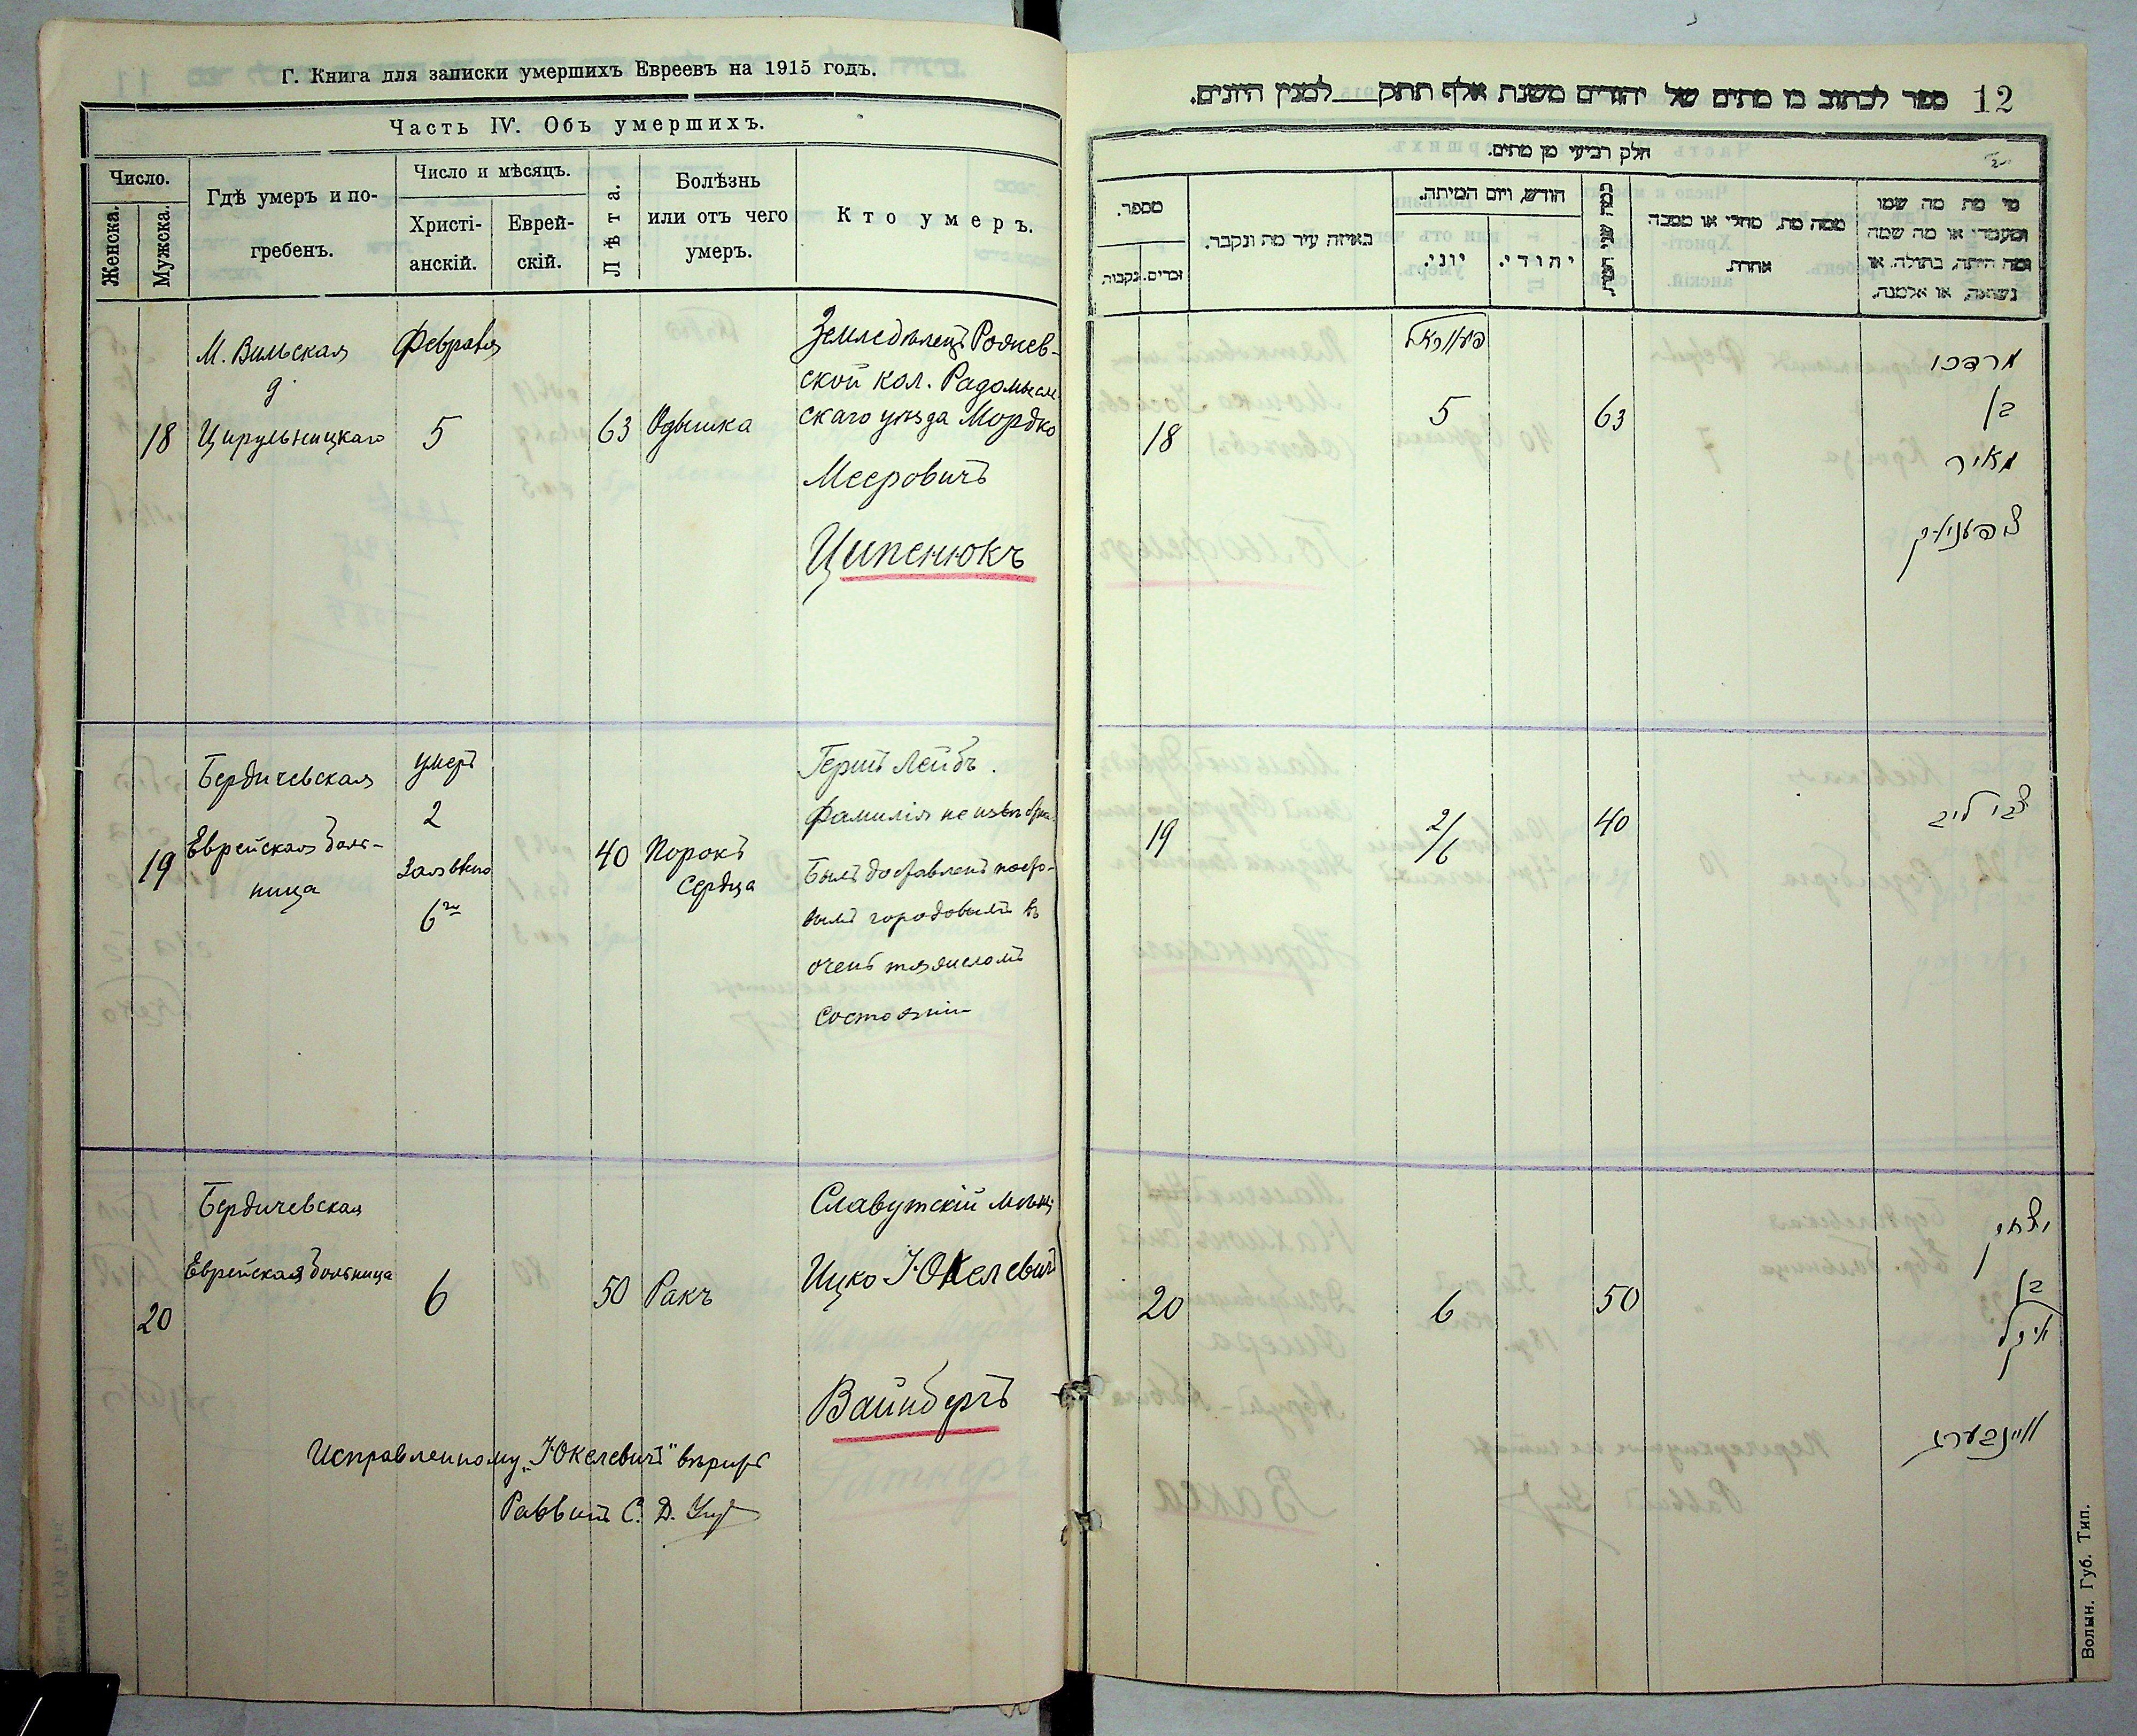 Г. Книга для записки умершихъ Евреевъ на 1915 годъ.
Часть IV. Объ умершихъ.
Число.
Женска.
Мужска.
Гдѣ умеръ и по-
гребенъ.
Число и мѣсяцъ.
Христі-
анскій.
Еврей-
скій.
Лѣта.
Болѣзнь
или отъ чего
умеръ.
Кто умеръ.
18
М. Вильская
д.
Цирульницкаго
Февраля
5
63
Одышка
Земледѣлецъ
ской кол. Радомысль
скаго уѣзда Мордко
Мееровичъ
Ципенюкъ
19
Бердичевская
Еврейская боль-
ница
умеръ
2
6го
40
Порокъ
сердца
Гершъ Лейбъ.
Фамилія неизвѣстна.
Былъ доставленъ посто-
вымъ городовымъ въ
очень тяжеломъ
состояніи
20
Бердичевская
Еврейская больница
6
50
Ракъ
Славутскій мѣщ.
Ицко Юкелевичъ
Вайнбергъ
Исправленному „Юкелевичъ" вѣрить
Раввинъ С. Д.
12
ספר לכתוב בו מתים של יהודים משנת אלף תתק___למנין היונים.
חלק רביעי מן מתים.
מספר.
זכרים.
נקבות.
באיזה עיר מת ונקבר.
חודש, ויום המיתה.
יוני.
יהודי.
כמה שני המת
ממה מת, מחלי או מסבה
אחרת.
מי מת מה שמו
ומעמדו או מה שמה
ומה היתה, בתולה, או
נשואה, או אלמנה.
18
פעוראל
5
63
מרדכו
בן
מאיר
צפעניוק
19
2/6
40
צבי ליב
20
6
50
יצחק
בן
יוקל
ויינבערג
Волын. Губ. Тип.